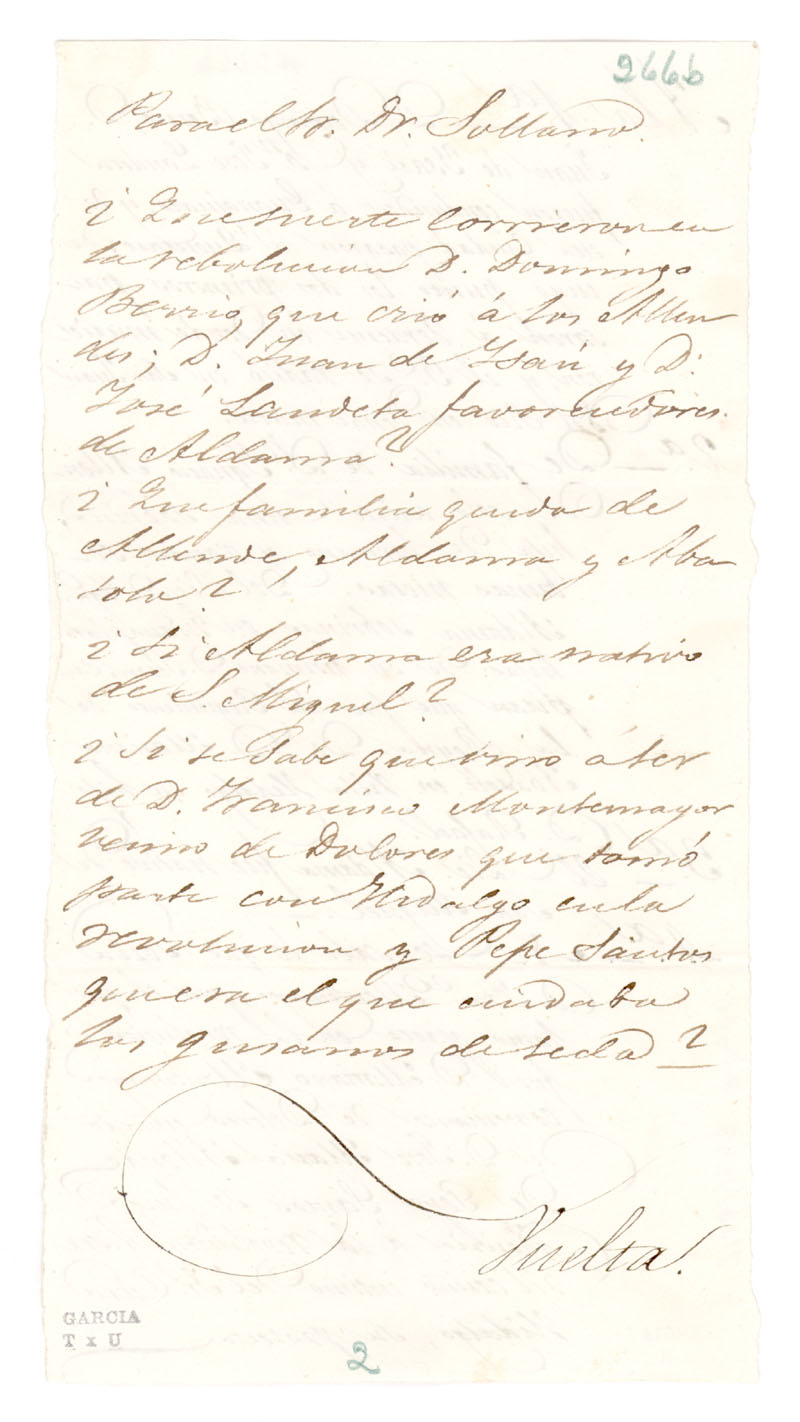 266b
Para el Sr. Dr. Sollano.
¿ Que suerte corrieron en
la rebolucion D. Domingo
Berrio, que crió á los Allen
des; D. Juan de Isasi y D.
José Landeta favorecedores
de Aldama?
¿ Que familia queda de
Allende, Aldama y Aba
solo?
¿ Si Aldama era nativo
de S. Miguel?
¿ Si se sabe que vino á ser
de D. Francisco Montemayor
vecino de Dolores que tomó
parte con Hidalgo en la
revolucion y Pepe Santos
que era el que cuidaba
los gusanos de seda?
Vuelta.
GARCIA
T x U
2